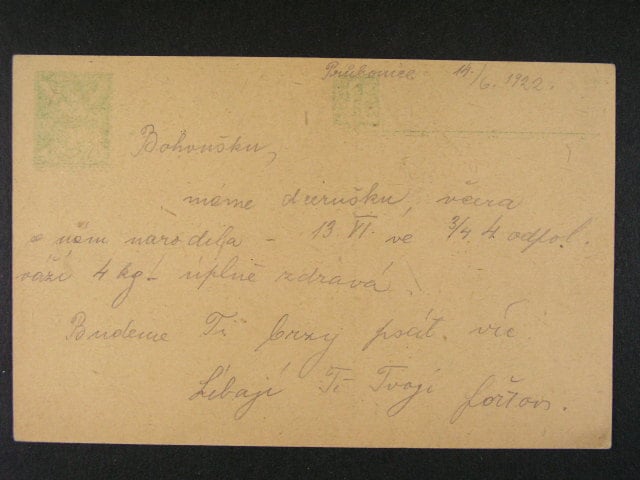 Průhonice 14./6. 1922.
Bohoušku,
máme dcerušku, včera
se nám narodila – 13. VI. ve 3/4 4. odpol.
váží 4 kg! – úplně zdravá.
Budeme Ti brzy psát víc.
Líbají Tě Tvoji